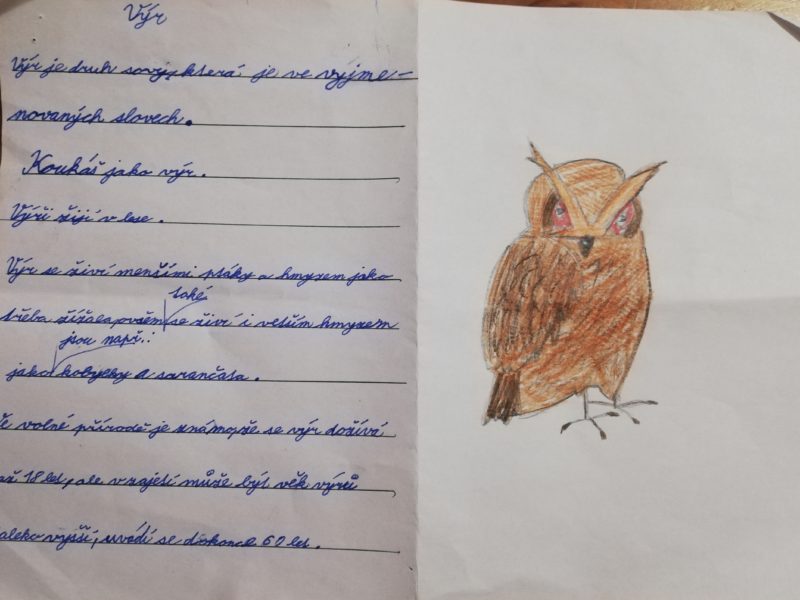 Výr
Výr je druh sovy, která je ve vyjme-
novaných slovech.
Koukáš jako výr.
Výři žijí v lese.
Výr se živí menšími ptáky a hmyzem jako
také
třeba žížala, se živí i vetším hmyzem
jsou např.:
jako kobylky a sarančata.
Ve volné přírodě je známo, že se výr dožívá
až 18 let, ale v zajetí může být věk výrů
daleko vyšší, uvádí se dokonce 60 let.